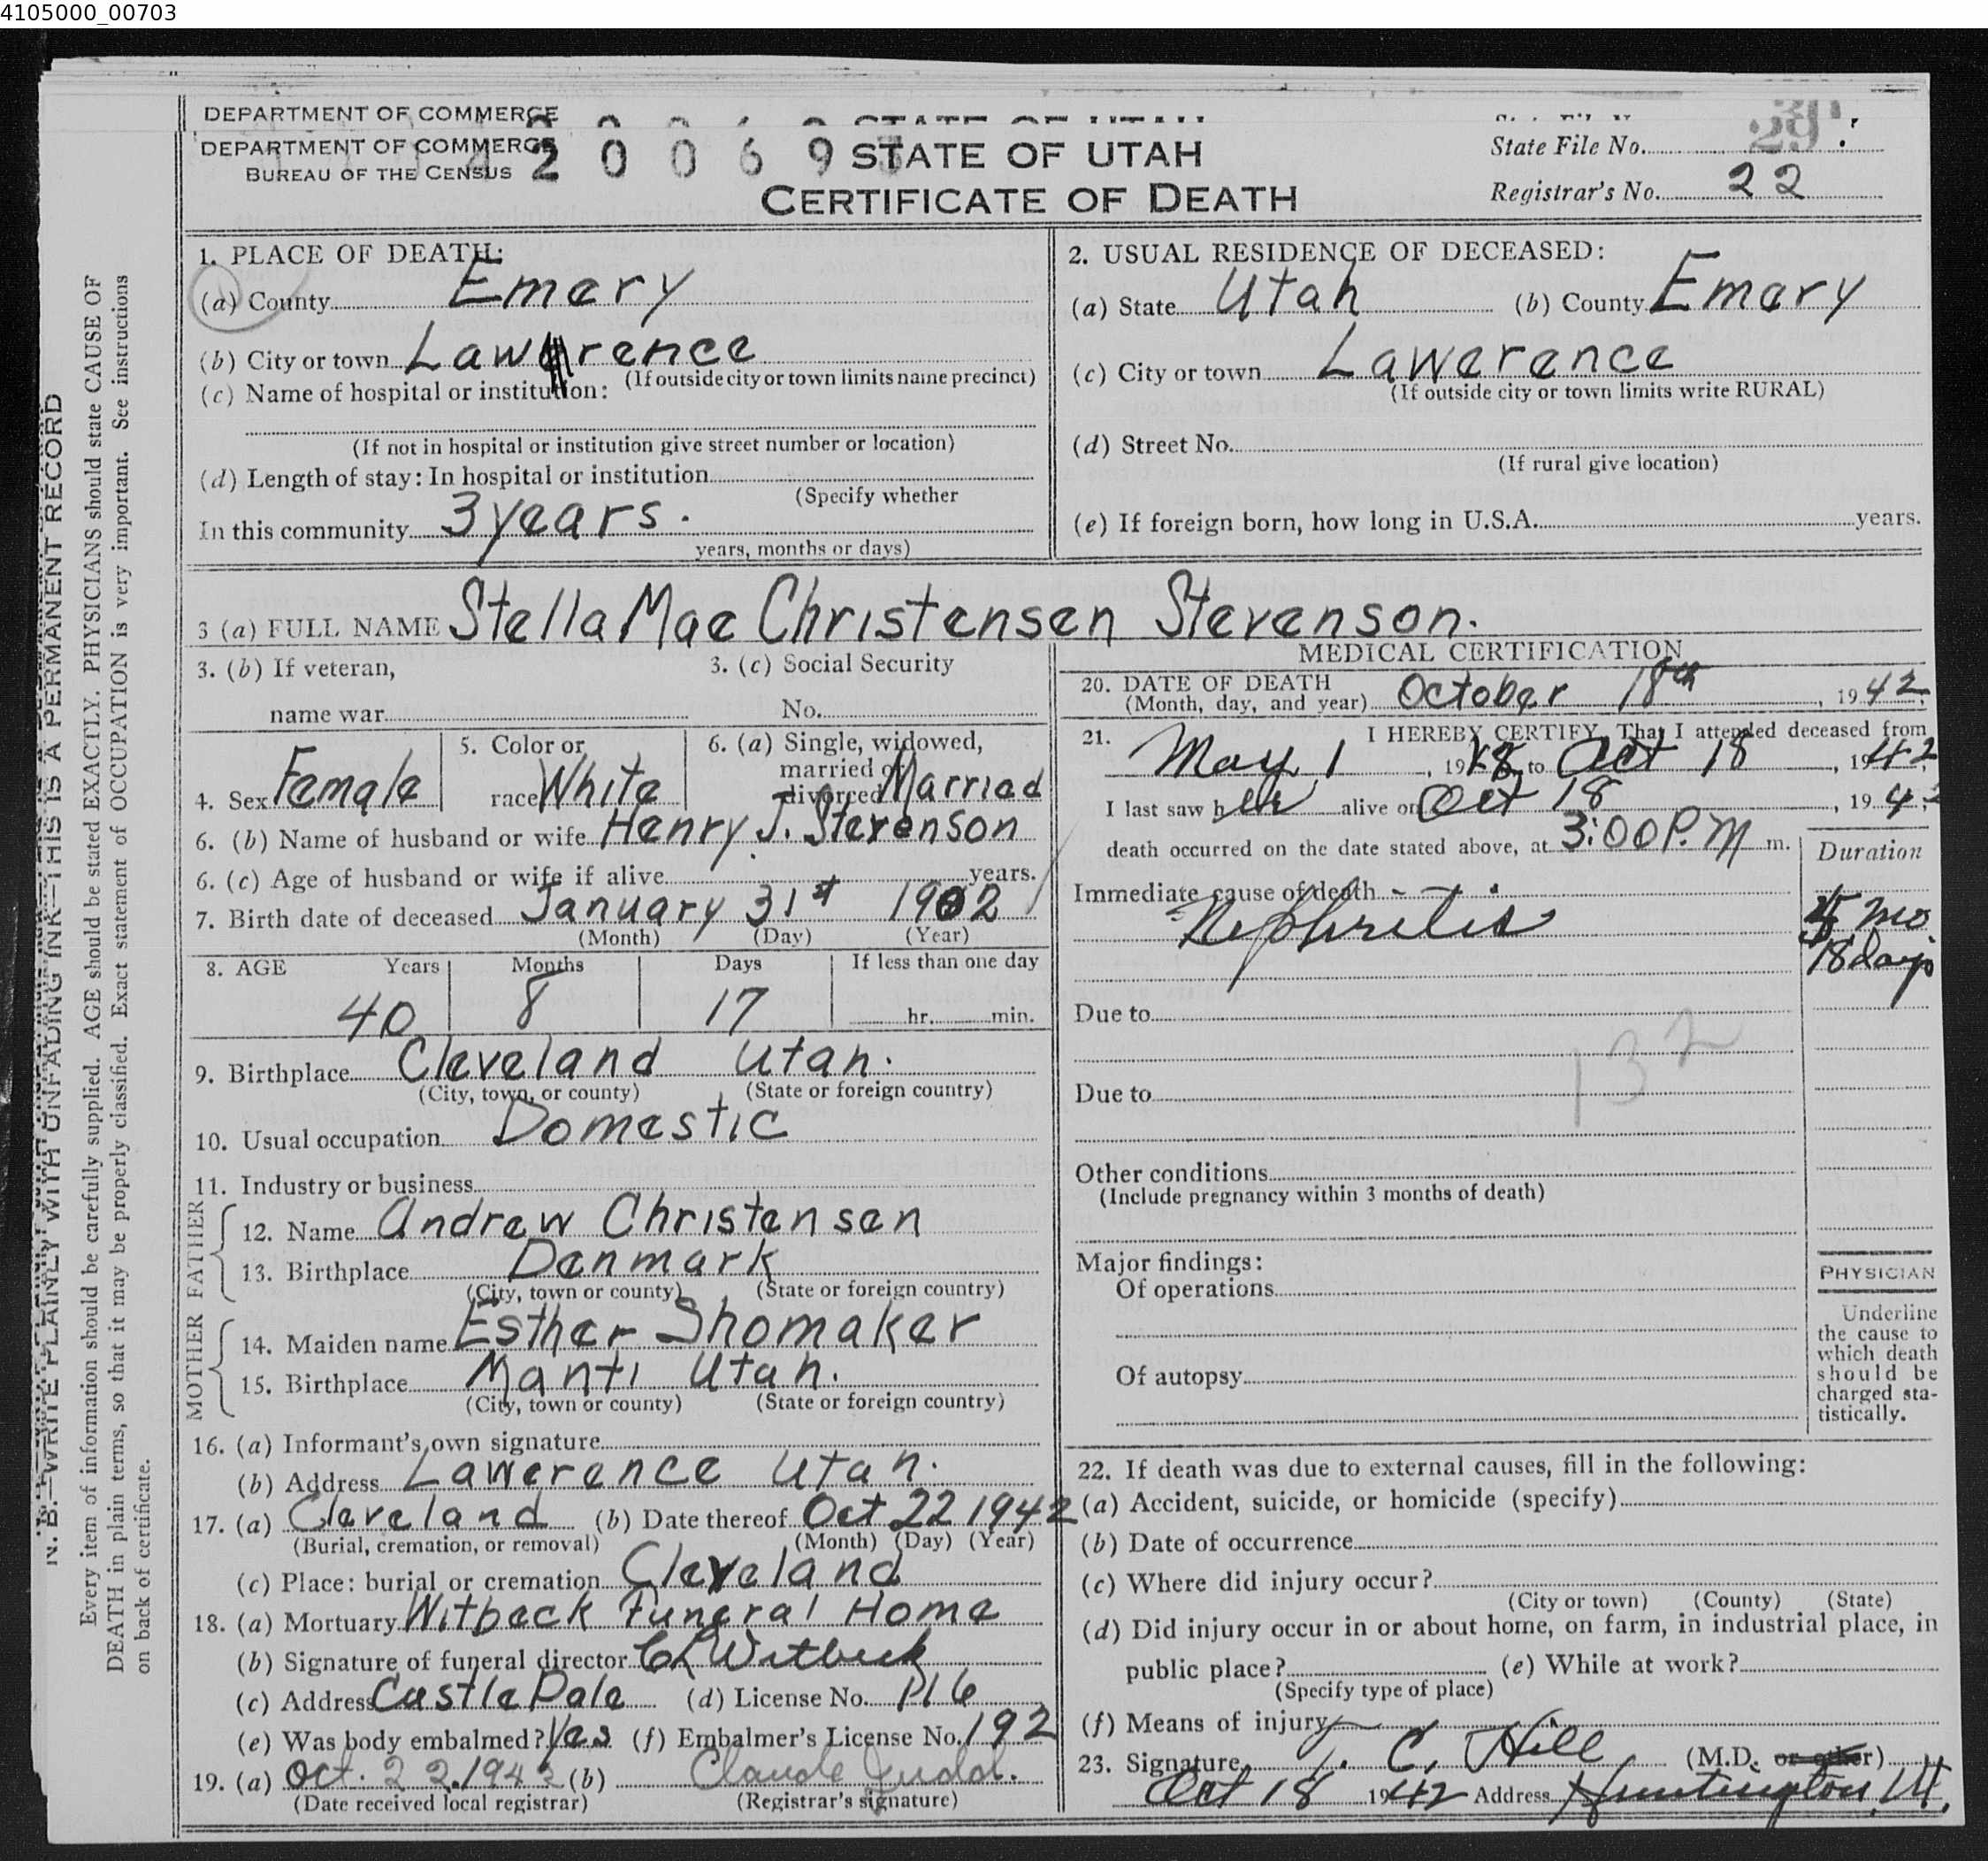 4105000_00703
DEPARTMENT OF COMMERCE
DEPARTMENT OF COMMERCE
BUREAU OF THE CENSUS
2 0 0 6 9
STATE OF UTAH
CERTIFICATE OF DEATH
State File No.
Registrar's No. 22
N. B.—WRITE PLAINLY WITH UNFADING INK—THIS IS A PERMANENT RECORD
Every item of information should be carefully supplied. AGE should be stated EXACTLY. PHYSICIANS should state CAUSE OF
DEATH in plain terms, so that it may be properly classified. Exact statement of OCCUPATION is very important. See instructions
on back of certificate.
1. PLACE OF DEATH:
(a) County Emery
(b) City or town Lawrence
(If outside city or town limits name precinct)
(c) Name of hospital or institution:
(If not in hospital or institution give street number or location)
(d) Length of stay: In hospital or institution
(Specify whether
In this community 3 years.
years, months or days)
2. USUAL RESIDENCE OF DECEASED:
(a) State Utah (b) County Emery
(c) City or town Lawerence
(If outside city or town limits write RURAL)
(d) Street No.
(If rural give location)
(e) If foreign born, how long in U.S.A. years.
3 (a) FULL NAME Stella Mae Christensen Stevenson.
3. (b) If veteran,
name war
3. (c) Social Security
No.
4. Sex Female
5. Color or
race White
6. (a) Single, widowed,
married or
divorced Married
6. (b) Name of husband or wife Henry J. Stevenson
6. (c) Age of husband or wife if alive years.
7. Birth date of deceased January 31st 1902
(Month) (Day) (Year)
8. AGE Years Months Days If less than one day
40 8 17 hr. min.
9. Birthplace Cleveland Utah.
(City, town, or county) (State or foreign country)
10. Usual occupation Domestic
11. Industry or business
FATHER
12. Name Andrew Christensen
13. Birthplace Denmark
(City, town or county) (State or foreign country)
MOTHER
14. Maiden name Esther Shomaker
15. Birthplace Manti Utah.
(City, town or county) (State or foreign country)
16. (a) Informant's own signature
(b) Address Lawerence Utah.
17. (a) Cleveland (b) Date thereof Oct 22 1942
(Burial, cremation, or removal) (Month) (Day) (Year)
(c) Place: burial or cremation Cleveland
18. (a) Mortuary Witbeck Funeral Home
(b) Signature of funeral director CL Witbeck
(c) Address Castle Dale (d) License No. P16
(e) Was body embalmed? Yes (f) Embalmer's License No. 192
19. (a) Oct. 22. 1942 (b) Claude Judd.
(Date received local registrar) (Registrar's signature)
MEDICAL CERTIFICATION
20. DATE OF DEATH
(Month, day, and year) October 18th, 1942
21. I HEREBY CERTIFY, That I attended deceased from
May 1, 19 to Oct 18, 1942
I last saw her alive on Oct 18, 1942
death occurred on the date stated above, at 3:00 P.M m.
Duration
Immediate cause of death
Nephritis
5 mo
18 days
Due to
132
Due to
Other conditions
(Include pregnancy within 3 months of death)
Major findings:
Of operations
Of autopsy
PHYSICIAN
Underline
the cause to
which death
should be
charged sta-
tistically.
22. If death was due to external causes, fill in the following:
(a) Accident, suicide, or homicide (specify)
(b) Date of occurrence
(c) Where did injury occur?
(City or town) (County) (State)
(d) Did injury occur in or about home, on farm, in industrial place, in
public place? (e) While at work?
(Specify type of place)
(f) Means of injury
23. Signature J. C. Hill (M.D. or other)
Oct 18 1942 Address Huntington, Ut.